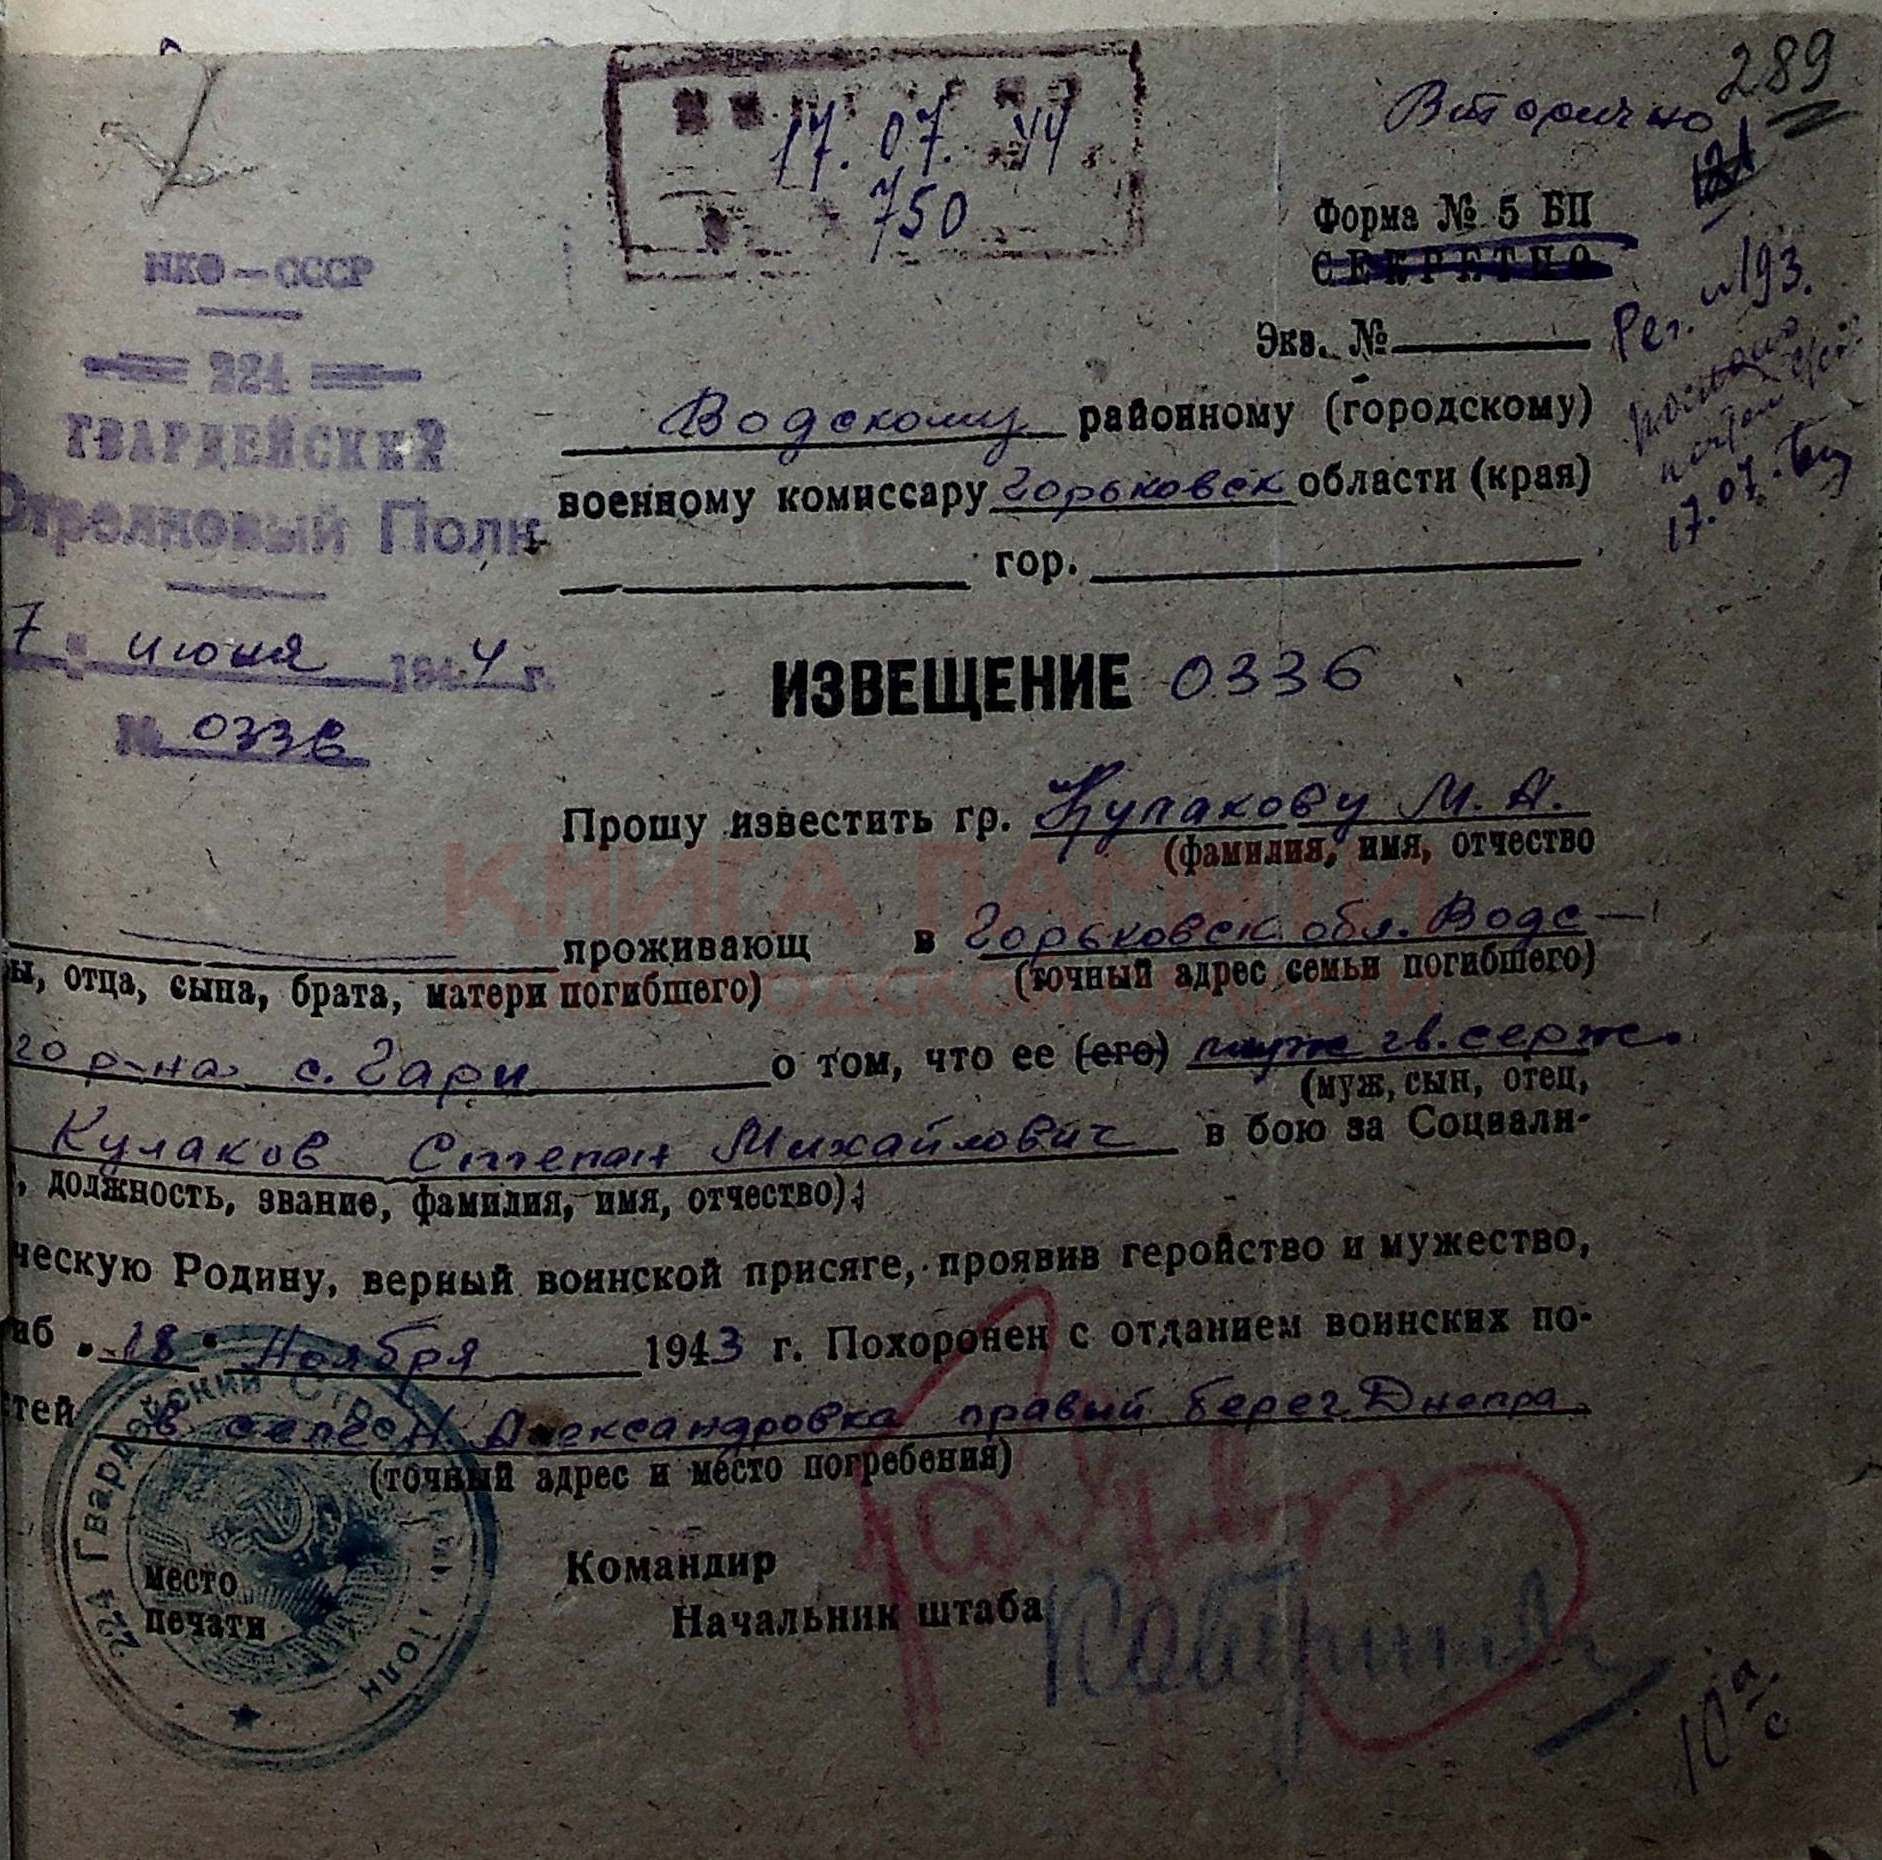 289
Вторично
17. 07. 44 г.
750
Форма № 5 БП
СЕКРЕТНО
Рег. №193.
Экз. №
17.07.
НКО — СССР
224
ГВАРДЕЙСКИЙ
Стрелковый Полк
7 июня 1944 г.
№ 0336
Водскому районному (городскому)
военному комиссару Горьковск области (края)
гор.
ИЗВЕЩЕНИЕ 0336
Прошу известить гр. Кулакову М. А.
(фамилия, имя, отчество
КНИГА ПАМЯТИ
проживающ в Горьковск обл. Водс-
ы, отца, сына, брата, матери погибшего) (точный адрес семьи погибшего)
НИЖЕГОРОДСКОЙ ОБЛАСТИ
го р-на с. Гари о том, что ее (его) муж гв. серж.
(муж, сын, отец,
Кулаков Степан Михайлович в бою за Социали-
, должность, звание, фамилия, имя, отчество)
ческую Родину, верный воинской присяге, проявив геройство и мужество,
иб „18" Ноября 1943 г. Похоронен с отданием воинских по-
стей в селе Н Александровка правый берег Днепра.
(точный адрес и место погребения)
Командир
Начальник штаба
место
печати
224 Гвардейский Стрелковый Полк
10а
с